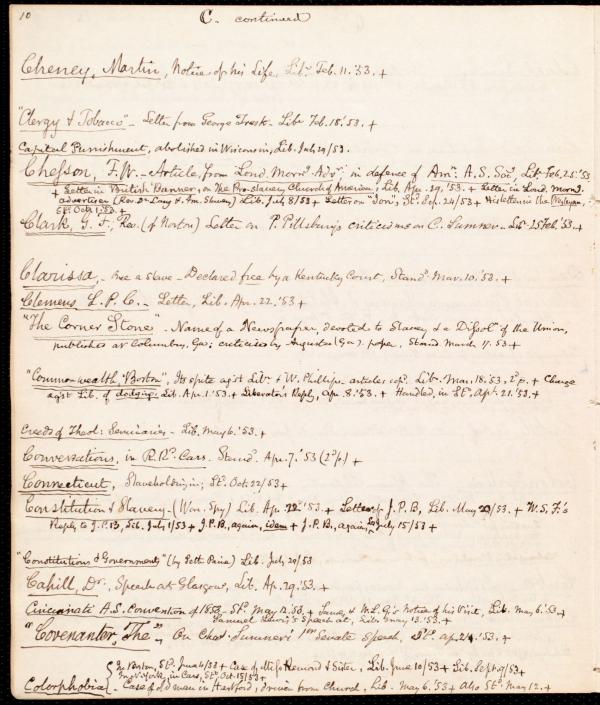 10
C. continued
Cheney, Martin, Notice of his Life, Libr. Feb. 11. '53. +
"Clergy & Tobacco" - Letter from George Trask - Libr Feb. 18. '53. +
Capital Punishment, abolished in Wisconsin, Lib. July 29/53.
Chesson, F. W. - Article, from Lond. Morng. Advr. in defence of Amn. A. S. Socy, Libr Feb. 25. '53
+ Letter in British Banner, on The Pro-slavery Church of America, Lib. Apr. 29, '53. + Letter in Lond. morng.
advertiser (Rev. Dr. & Am. Slavery) Lib. July 8/53 + Letter on St. Sep. 24/53 + His letter in the Wesleyan,
St. Oct. 1. 53. +
Clark, G. F., Rev. (of Norton) Letter on P. Pillsbury's criticisms on C. Sumner - Libr 25 Feb. '53. +
Clarissa, - a slave - Declared free by a Kentucky Court, Stand. Mar. 10. '53. +
Clemens L. P. C. - Letter, Lib. Apr. 22. '53 +
"The Corner Stone" - Name of a Newspaper, devoted to Slavery & a Dissoln. of the Union,
published at Columbus, Ga; criticism by Augusta (Ga.) paper, Stand March 17. 53 +
"Commonwealth, Boston", Its spite agst Libr. & W. Phillips - articles copd. Libr. Mar. 18. '53, 2d p. + Charge
agst Lib. of dodging: Lib. Apr. 1. '53 + Liberator's Reply, Apr. 8. '53. + Handled, in St. Apr. 21. '53 +
Creeds of Theol: Seminaries - Lib. May 6. '53. +
Conversations, in R. Rd. Cars. Stand. Apr. 7. '53 (2d p.) +
Connecticut, Slaveholding in; St. Oct. 22/53 +
Constitution & Slavery - (Won. Spy) Lib. Apr. 22. '53 + Letter of J. P. B, Lib. May 20/53. + W. S. F.'s
Reply to J. P. B, Lib. July 1/53 + J. P. B, again, idem + J. P. B., again, Lib July 15/53 +
"Constitution & Governments" (by Seth) Lib. July 29/53
Cahill, Dr., Speech at Glasgow, Lib. Apr. 29. '53. +
Cincinnati A. S. Convention of 1853. St. May 12. 53. + & W. L. G's notice of his Visit, Lib. May 6. '53 +
Samuel Lewis's Speech at, Lib May 13. '53. +
"Covenanter, The", On Chas. Sumner's 1st Senate Speech, St. Ap. 21. '53. +
In Boston, St. June 4/53 + Case of Miss Remond & Sister, Lib. June 10/53 + Lib. Sept. 9/53 +
In New York, in Cars, St. Oct. 15/53 +
Colorphobia - Case of old man in Hartford, driven from Church, Lib. May 6. '53 + Also St. May 12. +